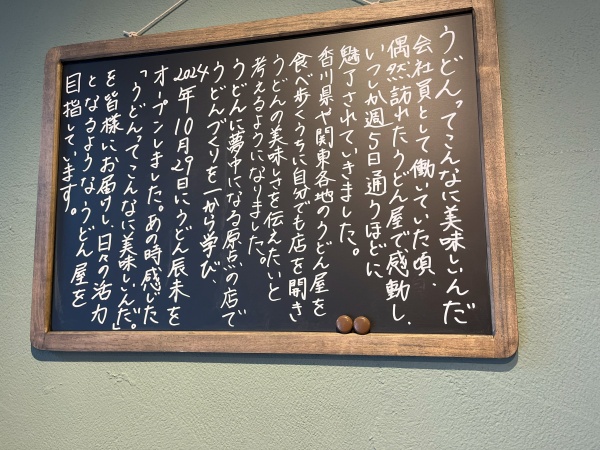 うどんってこんなに美味しいんだ
会社員として働いていた頃、
偶然訪れたうどん屋で感動し、
いつしか週5日通うほどに
魅了されていきました。
香川県や関東各地のうどん屋を
食べ歩くうちに自分でも店を開き
うどんの美味しさを伝えたいと
考えるようになりました。
うどんに夢中になる原点の店で
うどんづくりを一から学び、
2024年10月29日にうどん辰未を
オープンしました。あの時感じた
「うどんってこんなに美味しいんだ。」
を皆様にお届けし、日々の活力
となるようなうどん屋を
目指しています。